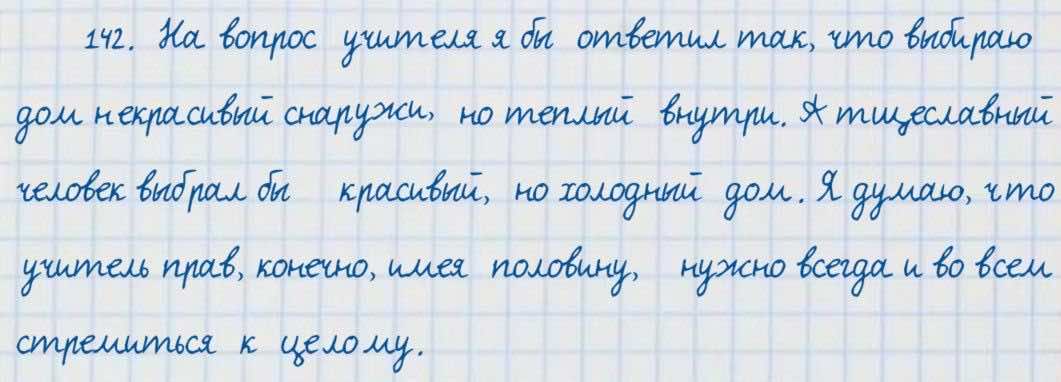 142. На вопрос учителя я бы ответил так, что выбираю
дом некрасивый снаружи, но теплый внутри. А тщеславный
человек выбрал бы красивый, но холодный дом. Я думаю, что
учитель прав, конечно, имея половину, нужно всегда и во всем
стремиться к целому.